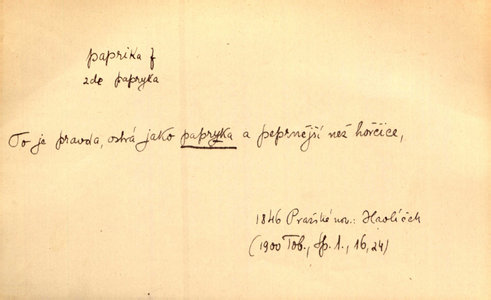 paprika f
zde papryka
To je pravda, ostrá jako papryka a peprnější než hořčice,
1846 Pražské nov.: Havlíček
(1900 Tob., Sp. 1., 16, 24)